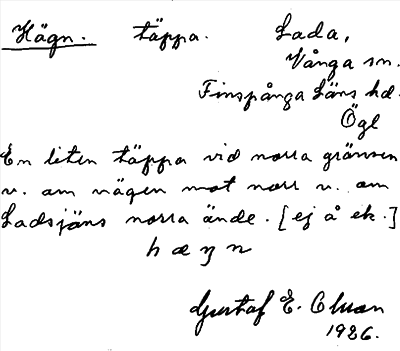 Hägn. täppa. Lada,
Vånga sn.
Finspånga läns hd.
Ögl
En liten täppa vid norra gränsen
v. om vägen mot norr v. om
Ladsjöns norra ände. [ej å ek.]
hæŋn
Gustaf E.
1926.